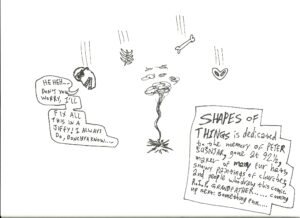 HEHEH...
DON'T YOU
WORRY, I'LL
FIX ALL
THIS IN A
JIFFY! I ALWAYS
DO, DONCHYA KNOW....
SHAPES OF
THINGS is dedicated
to the memory of PETER
gone at 92½,
maker of many fur hats
snowy paintings of churches,
and people who drong this comic
R.I.P. GRANDFATHER...... coming
up next: something fun....